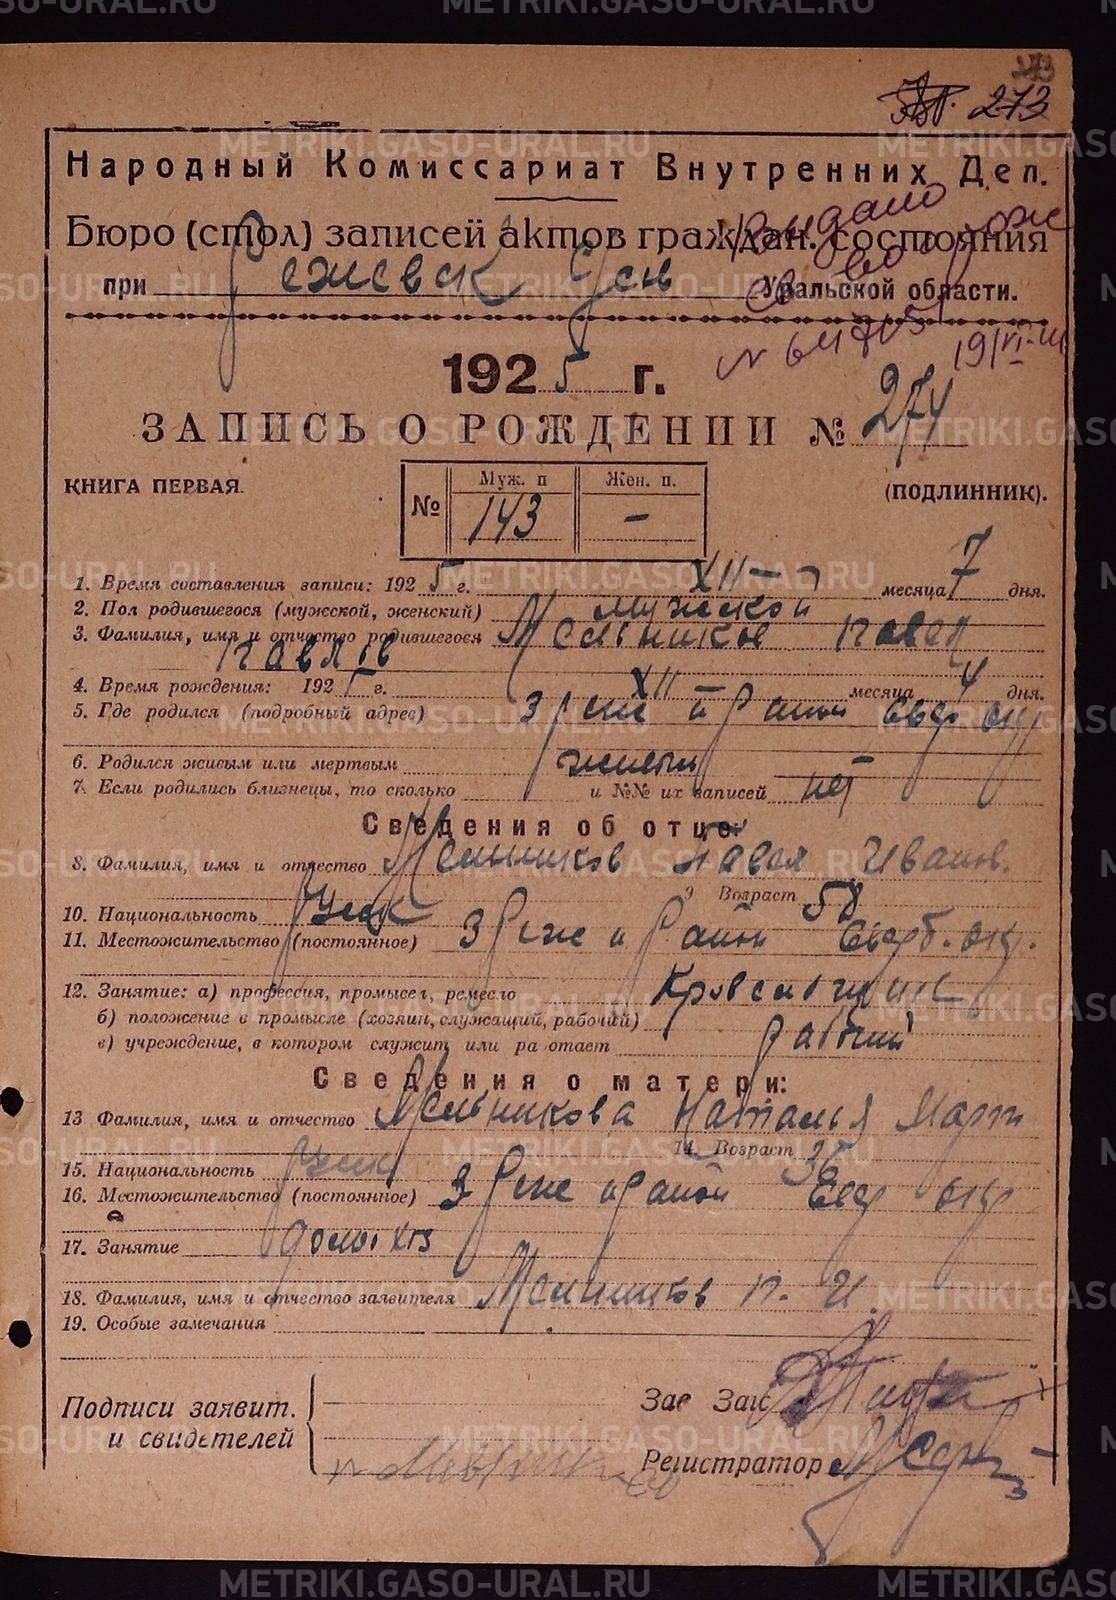 273
273
Народный Комиссариат Внутренних Дел.
Бюро (стол) записей актов граждан. состояния
Выдано
при Режевск Уральской области.
№ 1925 г.
ЗАПИСЬ О РОЖДЕНИИ № 274
КНИГА ПЕРВАЯ.
(ПОДЛИННИК).
№ Муж. п Жен. п.
143 –
1. Время составления записи: 1925 г. XII — месяца 7 дня.
2. Пол родившегося (мужсской, женский) мужской
3. Фамилия, имя и отчество родившегося Мельников Павел
Павлов
4. Время рождения: 1925 г. XII — месяца 4 дня.
5. Где родился (подробный адрес) З Реже и Район Свер окр
6. Родился живым или мертвым живым
7. Если родились близнецы, то сколько и №№ их записей нет
Сведения об отце:
8. Фамилия, имя и отчество Мельников Павел Иванов.
9 Возраст 58
10. Национальность Руск
11. Местожительство (постоянное) З Реже и Район Сверб. окр.
12. Занятие: а) профессия, промысел, ремесло Кровельщик
б) положение в промысле (хозяин, служащий, рабочий) рабочий
в) учреждение, в котором служит или работает
Сведения о матери:
13 Фамилия, имя и отчество Мельникова Наталья Март
14. Возраст 36
15. Национальность Руск
16. Местожительство (постоянное) З Реже и Район Свер окр
17. Занятие домохоз
18. Фамилия, имя и отчество заявителя Мельников П. И.
19. Особые замечания
Подписи заявит.
и свидетелей
Зав Загс
Регистратор
METRIKI.GASO-URAL.RU